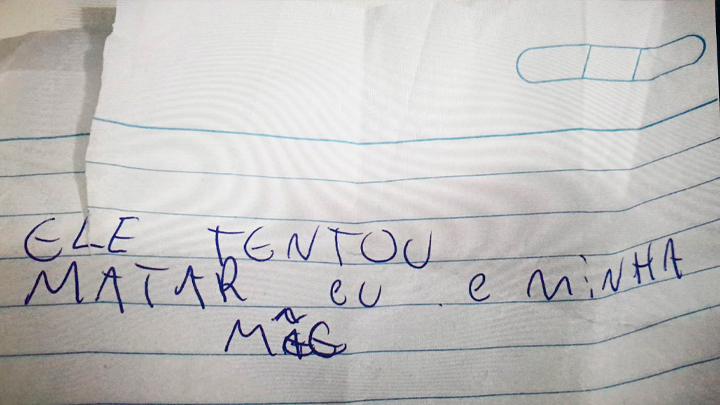 ELE TENTOU
MATAR eu e MiNHA
MãE